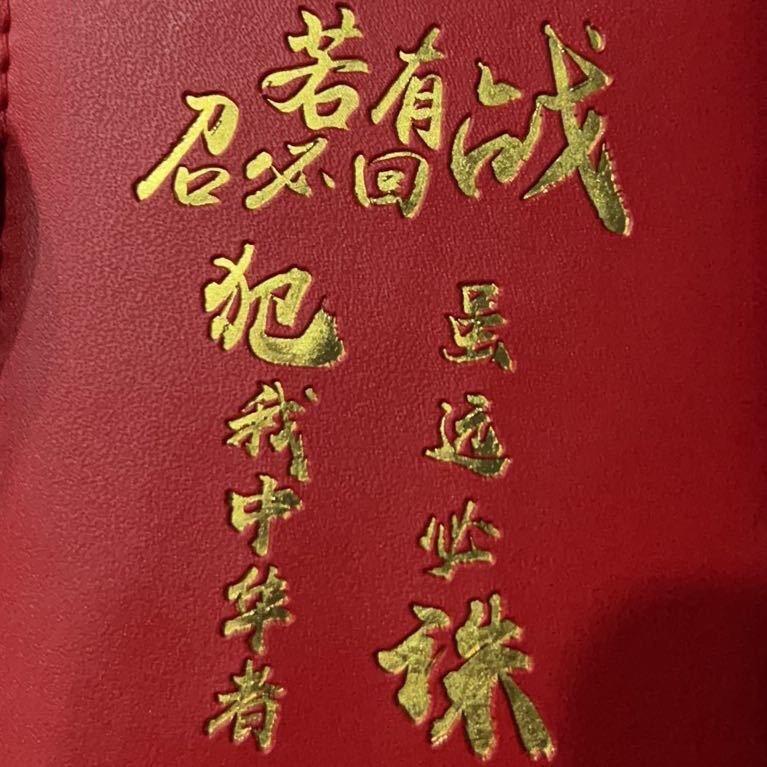 若有战
召必回
犯我中华者
虽远必诛